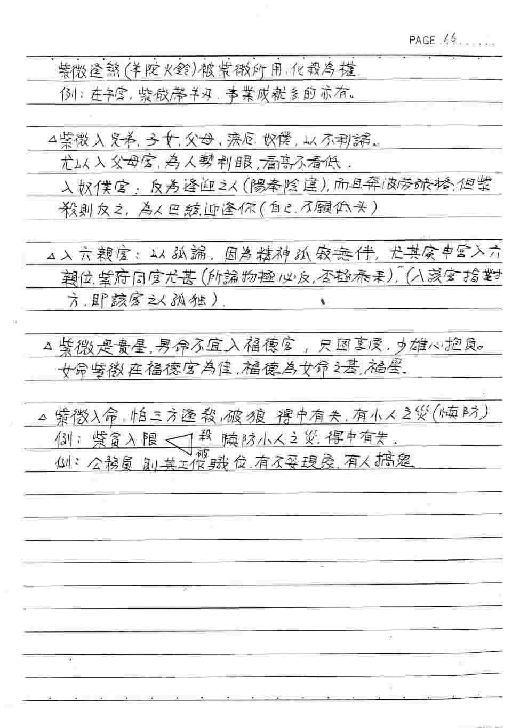 PAGE 16
紫微逢煞(羊陀火鈴)被紫微所用,化殺為權
例:在午宮,紫微帶羊刃,事業成就多的亦有。
△紫微入兄弟,子女,父母,疾厄,奴僕,以不利論。
尤以入父母宮,為人勢利眼,看高不看低.
入奴僕宮:反為逢迎之人(陽奉陰違),而且奔波勞碌,但紫
殺則反之,為人巴結迎逢你(自己不願低头)
△入六親宮:以孤論,因為精神孤寂無伴,尤其寅申宮入六
親位,紫府同宮尤甚(所論物極必反,否極泰來),(入該宮指對
方,即該宮之人孤独).
△紫微是貴星,男命不宜入福德宮,只因享受,少雄心抱負。
女命紫微在福德宮為佳,福德為女命之基,福星.
△紫微入命,怕三方逢殺,破狼 得中有失,有小人之災(慎防)
例:紫貪入限 殺 破 慎防小人之災,得中有失.
例:公務員 職位,有不妥現象,有人搞鬼